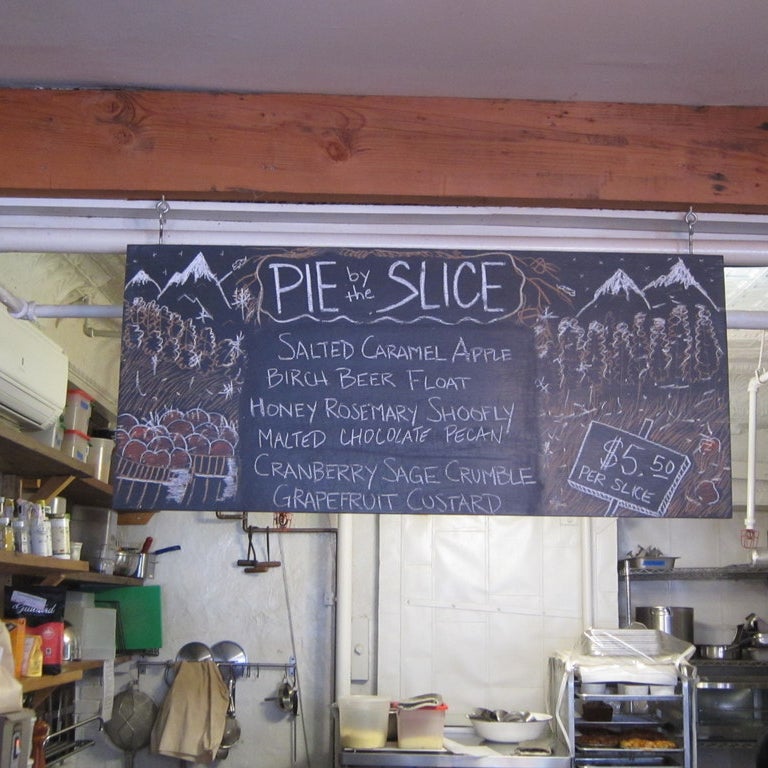 PIE by the SLICE
SALTED CARAMEL APPLE
BIRCH BEER FLOAT
HONEY ROSEMARY SHOOFLY
MALTED CHOCOLATE PECAN
CRANBERRY SAGE CRUMBLE
GRAPEFRUIT CUSTARD
$5.50
PER SLICE